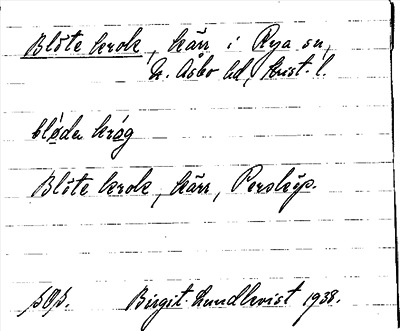 Blöte krok, kärr i Rya sn,
N. Åsbo hd, Krist. l.
blǿda krǿg
Blöte krok, kärr, Perstorp.
Birgit Lundkvist 1938.